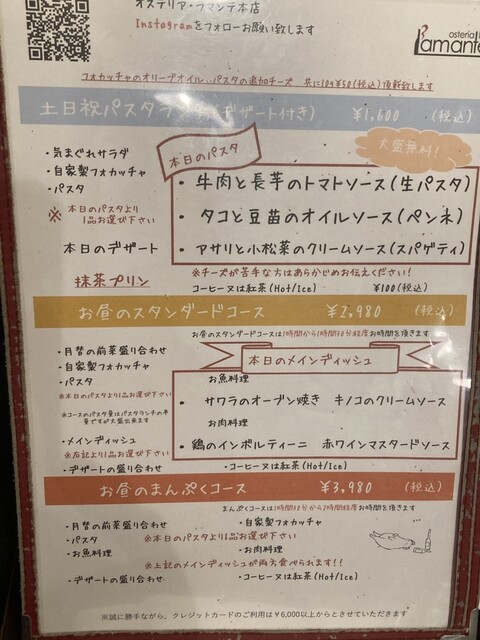 オステリア・ラマンテ本店
Instagramをフォローお願い致します
osteria
Lamante
フォカッチャのオリーブオイル、パスタの追加チーズ 共に10g¥50(税込)頂戴致します
土日祝パスタランチ(デザート付き) ¥1,600 (税込)
大盛無料!
・気まぐれサラダ
・自家製フォカッチャ
・パスタ
※本日のパスタより
1品お選び下さい
本日のデザート
抹茶プリン
本日のパスタ
・牛肉と長芋のトマトソース(生パスタ)
・タコと豆苗のオイルソース(ペンネ)
・アサリと小松菜のクリームソース(スパゲティ)
※チーズが苦手な方はあらかじめお伝えください!
コーヒーヌは紅茶(Hot/Ice) ¥100(税込)
お昼のスタンダードコース ¥2,980 (税込)
お昼のスタンダードコースは1時間から1時間30分程度お時間を頂きます
・月替の前菜盛り合わせ
・自家製フォカッチャ
・パスタ
※本日のパスタより1品お選び下さい
※コースのパスタ量はパスタランチの半
量ですが大盛出来ます
・メインディッシュ
※右記より1品お選び下さい
・デザートの盛り合わせ
本日のメインディッシュ
お魚料理
・サワラのオーブン焼き キノコのクリームソース
お肉料理
・鶏のインボルティーニ 赤ワインマスタードソース
・コーヒーヌは紅茶(Hot/Ice)
お昼のまんぷくコース ¥3,980 (税込)
まんぷくコースは1時間30分から2時間程度お時間を頂きます
・月替の前菜盛り合わせ
・自家製フォカッチャ
・パスタ ※本日のパスタより1品お選び下さい
・お魚料理
・お肉料理
※上記のメインディッシュが両方食べられます!!
・デザートの盛り合わせ
・コーヒーヌは紅茶(Hot/Ice)
※誠に勝手ながら、クレジットカードのご利用は¥6,000以上からとさせていただきます